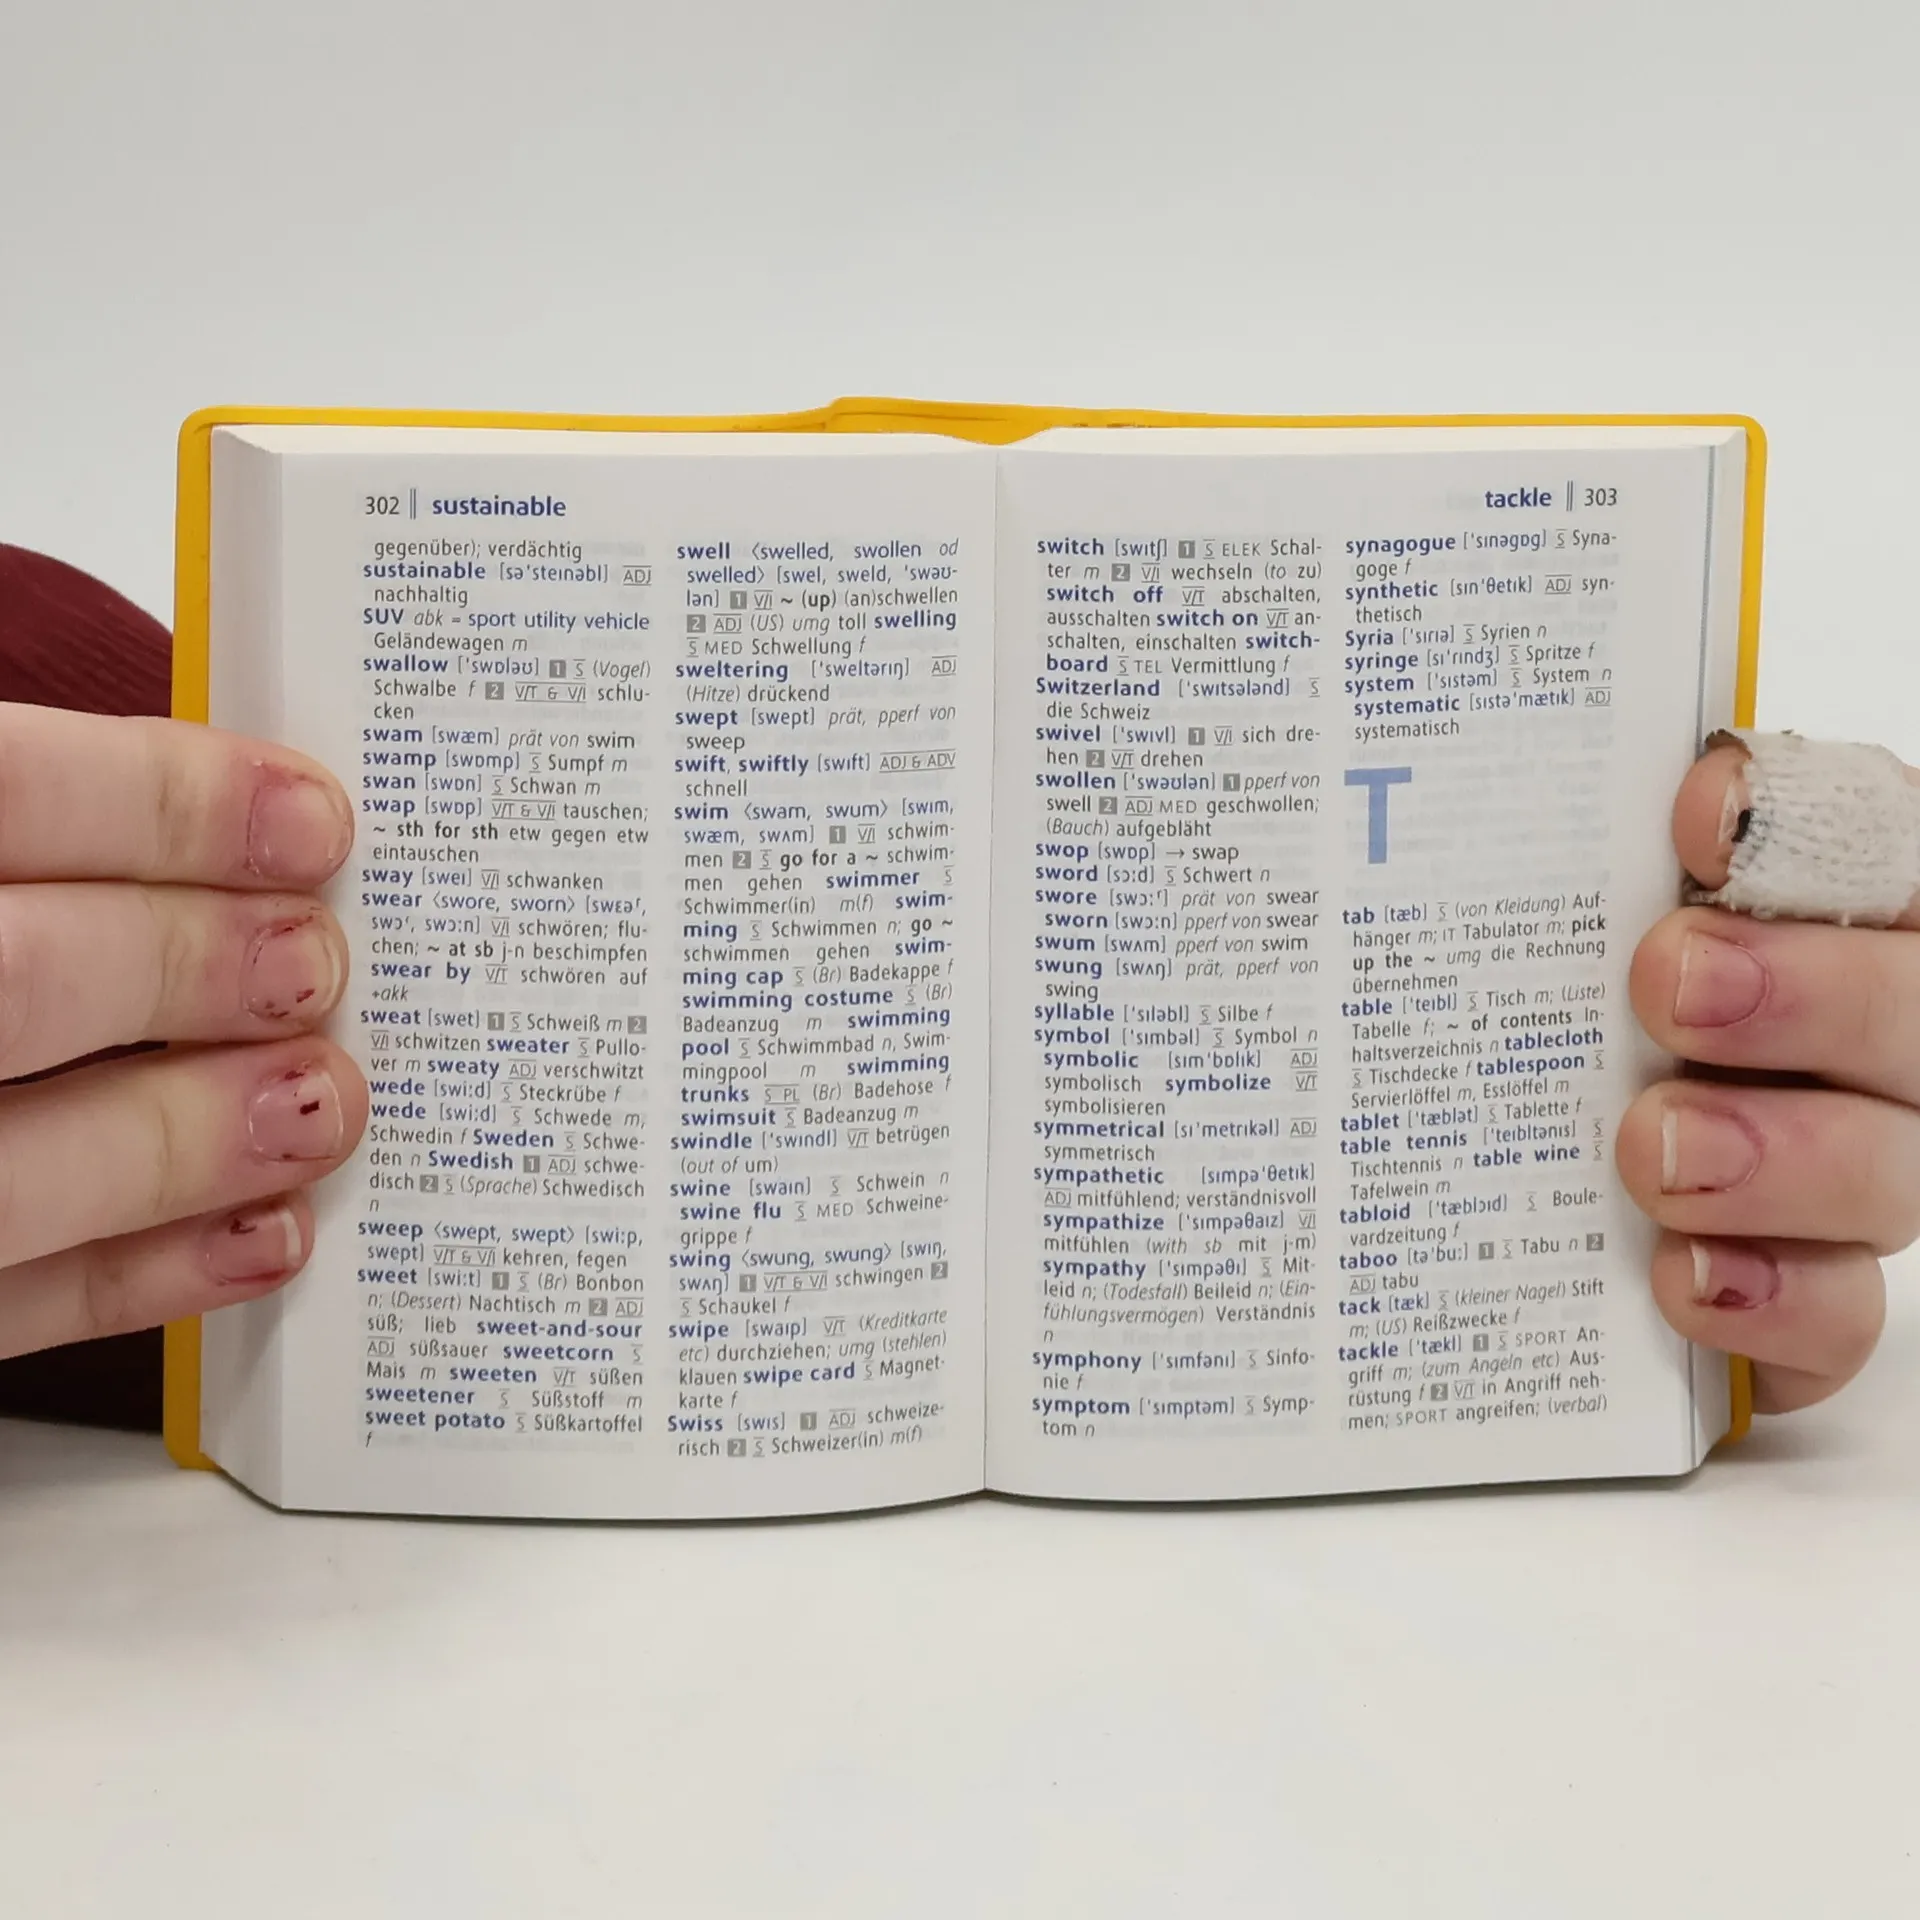 302 ‖ sustainable
gegenüber); verdächtig
sustainable [səˈsteɪnəbl] ADJ
nachhaltig
SUV abk = sport utility vehicle
Geländewagen m
swallow [ˈswɒləʊ] 1 S (Vogel)
Schwalbe f 2 V/T & V/I schlu-
cken
swam [swæm] prät von swim
swamp [swɒmp] S Sumpf m
swan [swɒn] S Schwan m
swap [swɒp] V/T & V/I tauschen;
~ sth for sth etw gegen etw
eintauschen
sway [sweɪ] V/I schwanken
swear ⟨swore, sworn⟩ [swɛəʳ,
swɔʳ, swɔːn] V/I schwören; flu-
chen; ~ at sb j-n beschimpfen
swear by V/T schwören auf
+akk
sweat [swet] 1 S Schweiß m 2
V/I schwitzen sweater S Pullo-
ver m sweaty ADJ verschwitzt
wede [swiːd] S Steckrübe f
wede [swiːd] S Schwede m,
Schwedin f Sweden S Schwe-
den n Swedish 1 ADJ schwe-
disch 2 S (Sprache) Schwedisch
n
sweep ⟨swept, swept⟩ [swiːp,
swept] V/T & V/I kehren, fegen
sweet [swiːt] 1 S (Br) Bonbon
n; (Dessert) Nachtisch m 2 ADJ
süß; lieb sweet-and-sour
ADJ süßsauer sweetcorn S
Mais m sweeten V/T süßen
sweetener S Süßstoff m
sweet potato S Süßkartoffel
f
swell ⟨swelled, swollen od
swelled⟩ [swel, sweld, ˈswəʊ-
lən] 1 V/I ~ (up) (an)schwellen
2 ADJ (US) umg toll swelling
S MED Schwellung f
sweltering [ˈsweltərɪŋ] ADJ
(Hitze) drückend
swept [swept] prät, pperf von
sweep
swift, swiftly [swɪft] ADJ & ADV
schnell
swim ⟨swam, swum⟩ [swɪm,
swæm, swʌm] 1 V/I schwim-
men 2 S go for a ~ schwim-
men gehen swimmer S
Schwimmer(in) m(f) swim-
ming S Schwimmen n; go ~
schwimmen gehen swim-
ming cap S (Br) Badekappe f
swimming costume S (Br)
Badeanzug m swimming
pool S Schwimmbad n, Swim-
mingpool m swimming
trunks S PL (Br) Badehose f
swimsuit S Badeanzug m
swindle [ˈswɪndl] V/T betrügen
(out of um)
swine [swaɪn] S Schwein n
swine flu S MED Schweine-
grippe f
swing ⟨swung, swung⟩ [swɪŋ,
swʌŋ] 1 V/T & V/I schwingen 2
S Schaukel f
swipe [swaɪp] V/T (Kreditkarte
etc) durchziehen; umg (stehlen)
klauen swipe card S Magnet-
karte f
Swiss [swɪs] 1 ADJ schweize-
risch 2 S Schweizer(in) m(f)
tackle ‖ 303
switch [swɪtʃ] 1 S ELEK Schal-
ter m 2 V/I wechseln (to zu)
switch off V/T abschalten,
ausschalten switch on V/T an-
schalten, einschalten switch-
board S TEL Vermittlung f
Switzerland [ˈswɪtsələnd] S
die Schweiz
swivel [ˈswɪvl] 1 V/I sich dre-
hen 2 V/T drehen
swollen [ˈswəʊlən] 1 pperf von
swell 2 ADJ MED geschwollen;
(Bauch) aufgebläht
swop [swɒp] → swap
sword [sɔːd] S Schwert n
swore [swɔːʳ] prät von swear
sworn [swɔːn] pperf von swear
swum [swʌm] pperf von swim
swung [swʌŋ] prät, pperf von
swing
syllable [ˈsɪləbl] S Silbe f
symbol [ˈsɪmbəl] S Symbol n
symbolic [sɪmˈbɒlɪk] ADJ
symbolisch symbolize V/T
symbolisieren
symmetrical [sɪˈmetrɪkəl] ADJ
symmetrisch
sympathetic [sɪmpəˈθetɪk]
ADJ mitfühlend; verständnisvoll
sympathize [ˈsɪmpəθaɪz] V/I
mitfühlen (with sb mit j-m)
sympathy [ˈsɪmpəθɪ] S Mit-
leid n; (Todesfall) Beileid n; (Ein-
fühlungsvermögen) Verständnis
n
symphony [ˈsɪmfənɪ] S Sinfo-
nie f
symptom [ˈsɪmptəm] S Symp-
tom n
synagogue [ˈsɪnəgɒg] S Syna-
goge f
synthetic [sɪnˈθetɪk] ADJ syn-
thetisch
Syria [ˈsɪrɪə] S Syrien n
syringe [sɪˈrɪndʒ] S Spritze f
system [ˈsɪstəm] S System n
systematic [sɪstəˈmætɪk] ADJ
systematisch
T
tab [tæb] S (von Kleidung) Auf-
hänger m; IT Tabulator m; pick
up the ~ umg die Rechnung
übernehmen
table [ˈteɪbl] S Tisch m; (Liste)
Tabelle f; ~ of contents In-
haltsverzeichnis n tablecloth
S Tischdecke f tablespoon S
Servierlöffel m, Esslöffel m
tablet [ˈtæblət] S Tablette f
table tennis [ˈteɪbltənɪs] S
Tischtennis n table wine S
Tafelwein m
tabloid [ˈtæblɔɪd] S Boule-
vardzeitung f
taboo [təˈbuː] 1 S Tabu n 2
ADJ tabu
tack [tæk] S (kleiner Nagel) Stift
m; (US) Reißzwecke f
tackle [ˈtækl] 1 S SPORT An-
griff m; (zum Angeln etc) Aus-
rüstung f 2 V/T in Angriff neh-
men; SPORT angreifen; (verbal)